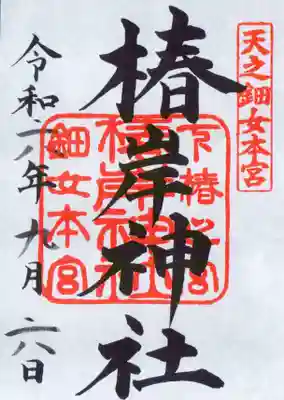 天之鈿女本宮
椿岸神社
下椿宮
椿岸神社
鈿女本宮
令和六年九月六日